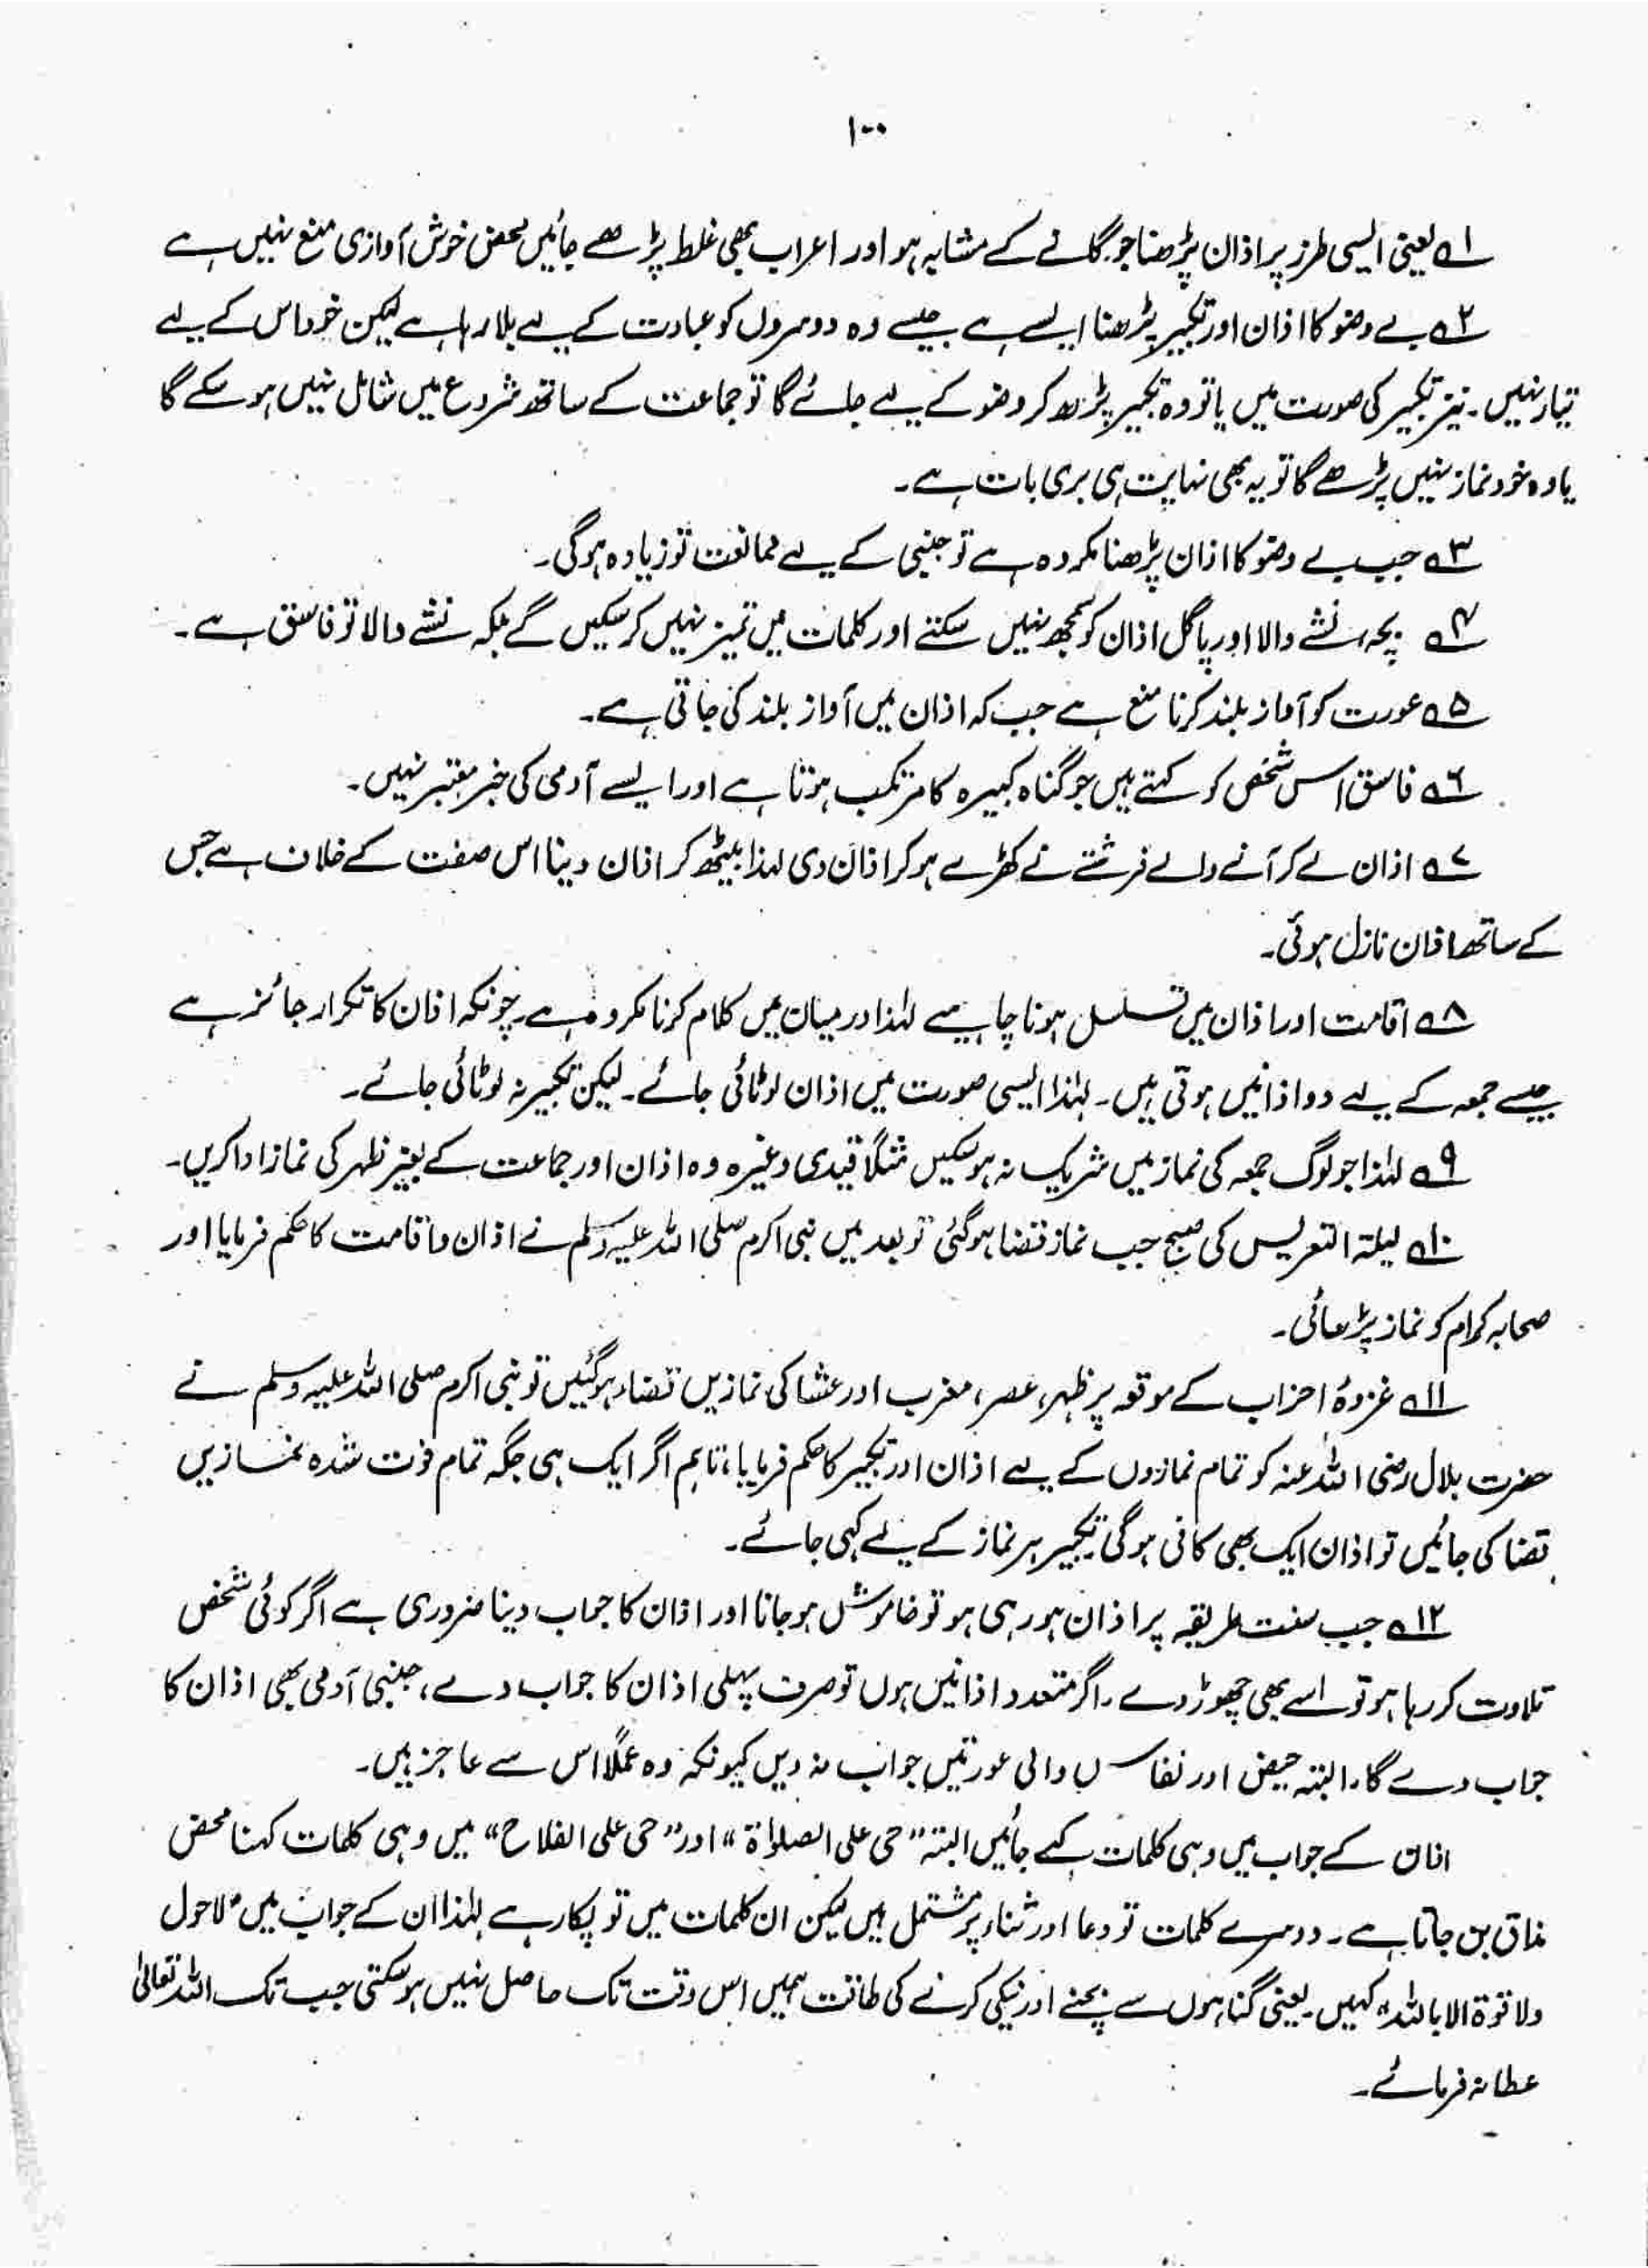 ۱۰۰
۱؎ یعنی ایسی طرز پر اذان پڑھنا جو گانے کے مشابہ ہو اور اعراب بھی غلط پڑھے جائیں محض خوش آوازی منع نہیں ہے
۲؎ بے وضو کا اذان اور تکبیر پڑھنا ایسے ہے جیسے وہ دوسروں کو عبادت کے لیے بلا رہا ہے لیکن خود اس کے لیے
تیار نہیں۔ نیز تکبیر کی صورت میں یا تو وہ تکبیر پڑھ کر وضو کے لیے جائے گا تو جماعت کے ساتھ شروع میں شامل نہیں ہو سکے گا
یا وہ خود نماز نہیں پڑھے گا تو یہ بھی نہایت ہی بری بات ہے۔
۳؎ جب بے وضو کا اذان پڑھنا مکروہ ہے تو جنبی کے لیے ممانعت تو زیادہ ہوگی۔
۴؎ بچہ، نشے والا اور پاگل اذان کو سمجھ نہیں سکتے اور کلمات میں تمیز نہیں کر سکیں گے بلکہ نشے والا تو فاسق ہے۔
۵؎ عورت کو آواز بلند کرنا منع ہے جب کہ اذان میں آواز بلند کی جاتی ہے۔
۶؎ فاسق اس شخص کو کہتے ہیں جو گناہ کبیرہ کا مرتکب ہوتا ہے اور ایسے آدمی کی خبر معتبر نہیں۔
۷؎ اذان لے کر آنے والے فرشتے نے کھڑے ہو کر اذان دی لہذا بیٹھ کر اذان دینا اس صفت کے خلاف ہے جس
کے ساتھ اذان نازل ہوئی۔
۸؎ اقامت اور اذان میں تسلسل ہونا چاہیے لہٰذا درمیان میں کلام کرنا مکروہ ہے۔ چونکہ اذان کا تکرار جائز ہے
جیسے جمعہ کے لیے دو اذانیں ہوتی ہیں۔ لہٰذا ایسی صورت میں اذان لوٹائی جائے۔ لیکن تکبیر نہ لوٹائی جائے۔
۹؎ لہٰذا جو لوگ جمعہ کی نماز میں شریک نہ ہو سکیں مثلاً قیدی وغیرہ وہ اذان اور جماعت کے بغیر ظہر کی نماز ادا کریں۔
۱۰؎ لیلۃ التعریس کی صبح جب نماز قضا ہو گئی تو بعد میں نبی اکرم صلی اللہ علیہ وسلم نے اذان و اقامت کا حکم فرمایا اور
صحابہ کرام کو نماز پڑھائی۔
۱۱؎ غزوۂ احزاب کے موقعہ پر ظہر، عصر، مغرب اور عشا کی نمازیں قضاء ہو گئیں تو نبی اکرم صلی اللہ علیہ وسلم نے
حضرت بلال رضی اللہ عنہ کو تمام نمازوں کے لیے اذان اور تکبیر کا حکم فرمایا، تاہم اگر ایک ہی جگہ تمام فوت شدہ نمازیں
قضا کی جائیں تو اذان ایک بھی کافی ہوگی تکبیر ہر نماز کے لیے کہی جائے۔
۱۲؎ جب سنت طریقہ پر اذان ہو رہی ہو تو خاموش ہو جانا اور اذان کا جواب دینا ضروری ہے اگر کوئی شخص
تلاوت کر رہا ہو تو اسے بھی چھوڑ دے۔ اگر متعدد اذانیں ہوں تو صرف پہلی اذان کا جواب دے، جنبی آدمی بھی اذان کا
جواب دے گا۔ البتہ حیض اور نفاس والی عورتیں جواب نہ دیں کیونکہ وہ عملاً اس سے عاجز ہیں۔
اذان کے جواب میں وہی کلمات کہے جائیں البتہ "حی علی الصلوٰۃ" اور "حی علی الفلاح" میں وہی کلمات کہنا محض
مذاق بن جاتا ہے۔ دوسرے کلمات تو دعا اور ثناء پر مشتمل ہیں لیکن ان کلمات میں تو پکار ہے لہٰذا ان کے جواب میں "لاحول
ولا قوۃ الا باللہ" کہیں۔ یعنی گناہوں سے بچنے اور نیکی کرنے کی طاقت ہمیں اس وقت تک حاصل نہیں ہو سکتی جب تک اللہ تعالیٰ
عطا نہ فرمائے۔